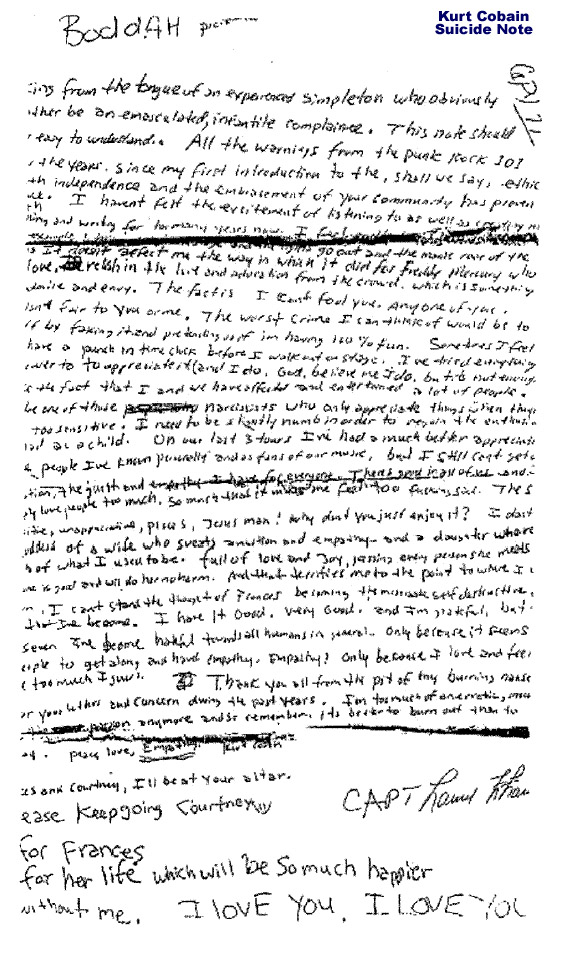 Kurt Cobain
Suicide Note
BoddAH
ing from the tongue of an experienced simpleton who obviously
ther be an emasculated, infantile complainee. This note should
easy to understand. All the warnings from the punk rock 101
the years. since my first introduction to the, shall we say, ethic
th independence and the embracement of your community has proven
ue. I havent felt the excitement of listening to as well as creating m
ing and writing for too many years now. I feel
go out and the manic roar of the
affect me the way in which it did for freddy Mercury who
love, relish in the love and adoration from the crowd. which is something
dmire and envy. The fact is I cant fool you. Any one of you.
isnt fair to you or me. The worst crime I can think of would be to
ff by faking it and pretending as if im having 100% fun. Sometimes I feel
have a punch in time clock before I walk out on stage. I've tried everything
ower to appreciate it (and I do, God, believe me I do, but its not enough
the fact that I and we have affected and entertained a lot of people.
be one of those narcissists who only appreciate things when they
too sensitive. I need to be slightly numb in order to regain the enthusia
had as a child. On our last 3 tours I've had a much better appreciati
people I've known personally and as fans of our music, but I still cant get o
tion, the guilt and empathy I have for everyone. Theres good in all of us and i
ly love people too much. So much that it makes me feel too fucking sad. The s
itive, unappreciative, pisces, Jesus man! why dont you just enjoy it? I dont
goddess of a wife who sweats ambition and empathy and a daughter who re
h of what I used to be. full of love and Joy, kissing every person she meets
one is good and will do her no harm. And that terrifies me to the point to where I c
n. I cant stand the thought of Frances becoming the miserable, self destructive,
that Ive become. I have it Good. very Good. and I'm grateful, but
seven Ive become hateful towards all humans in general. Only because it seems
eople to get along and have empathy. Empathy! Only because I love and feel
e too much I guess. Thank you all from the pit of my burning nause
or your letters and concern during the past years. I'm too much of an erratic, moo
person anymore and so remember, its better to burn out than to
ay. peace, love, Empathy. Kurt Cobain
ces and Courtney, I'll be at your altar.
ease Keep going Courtney
CAPT
for Frances
for her life which will be so much happier
without me. I LOVE YOU. I LOVE YOU